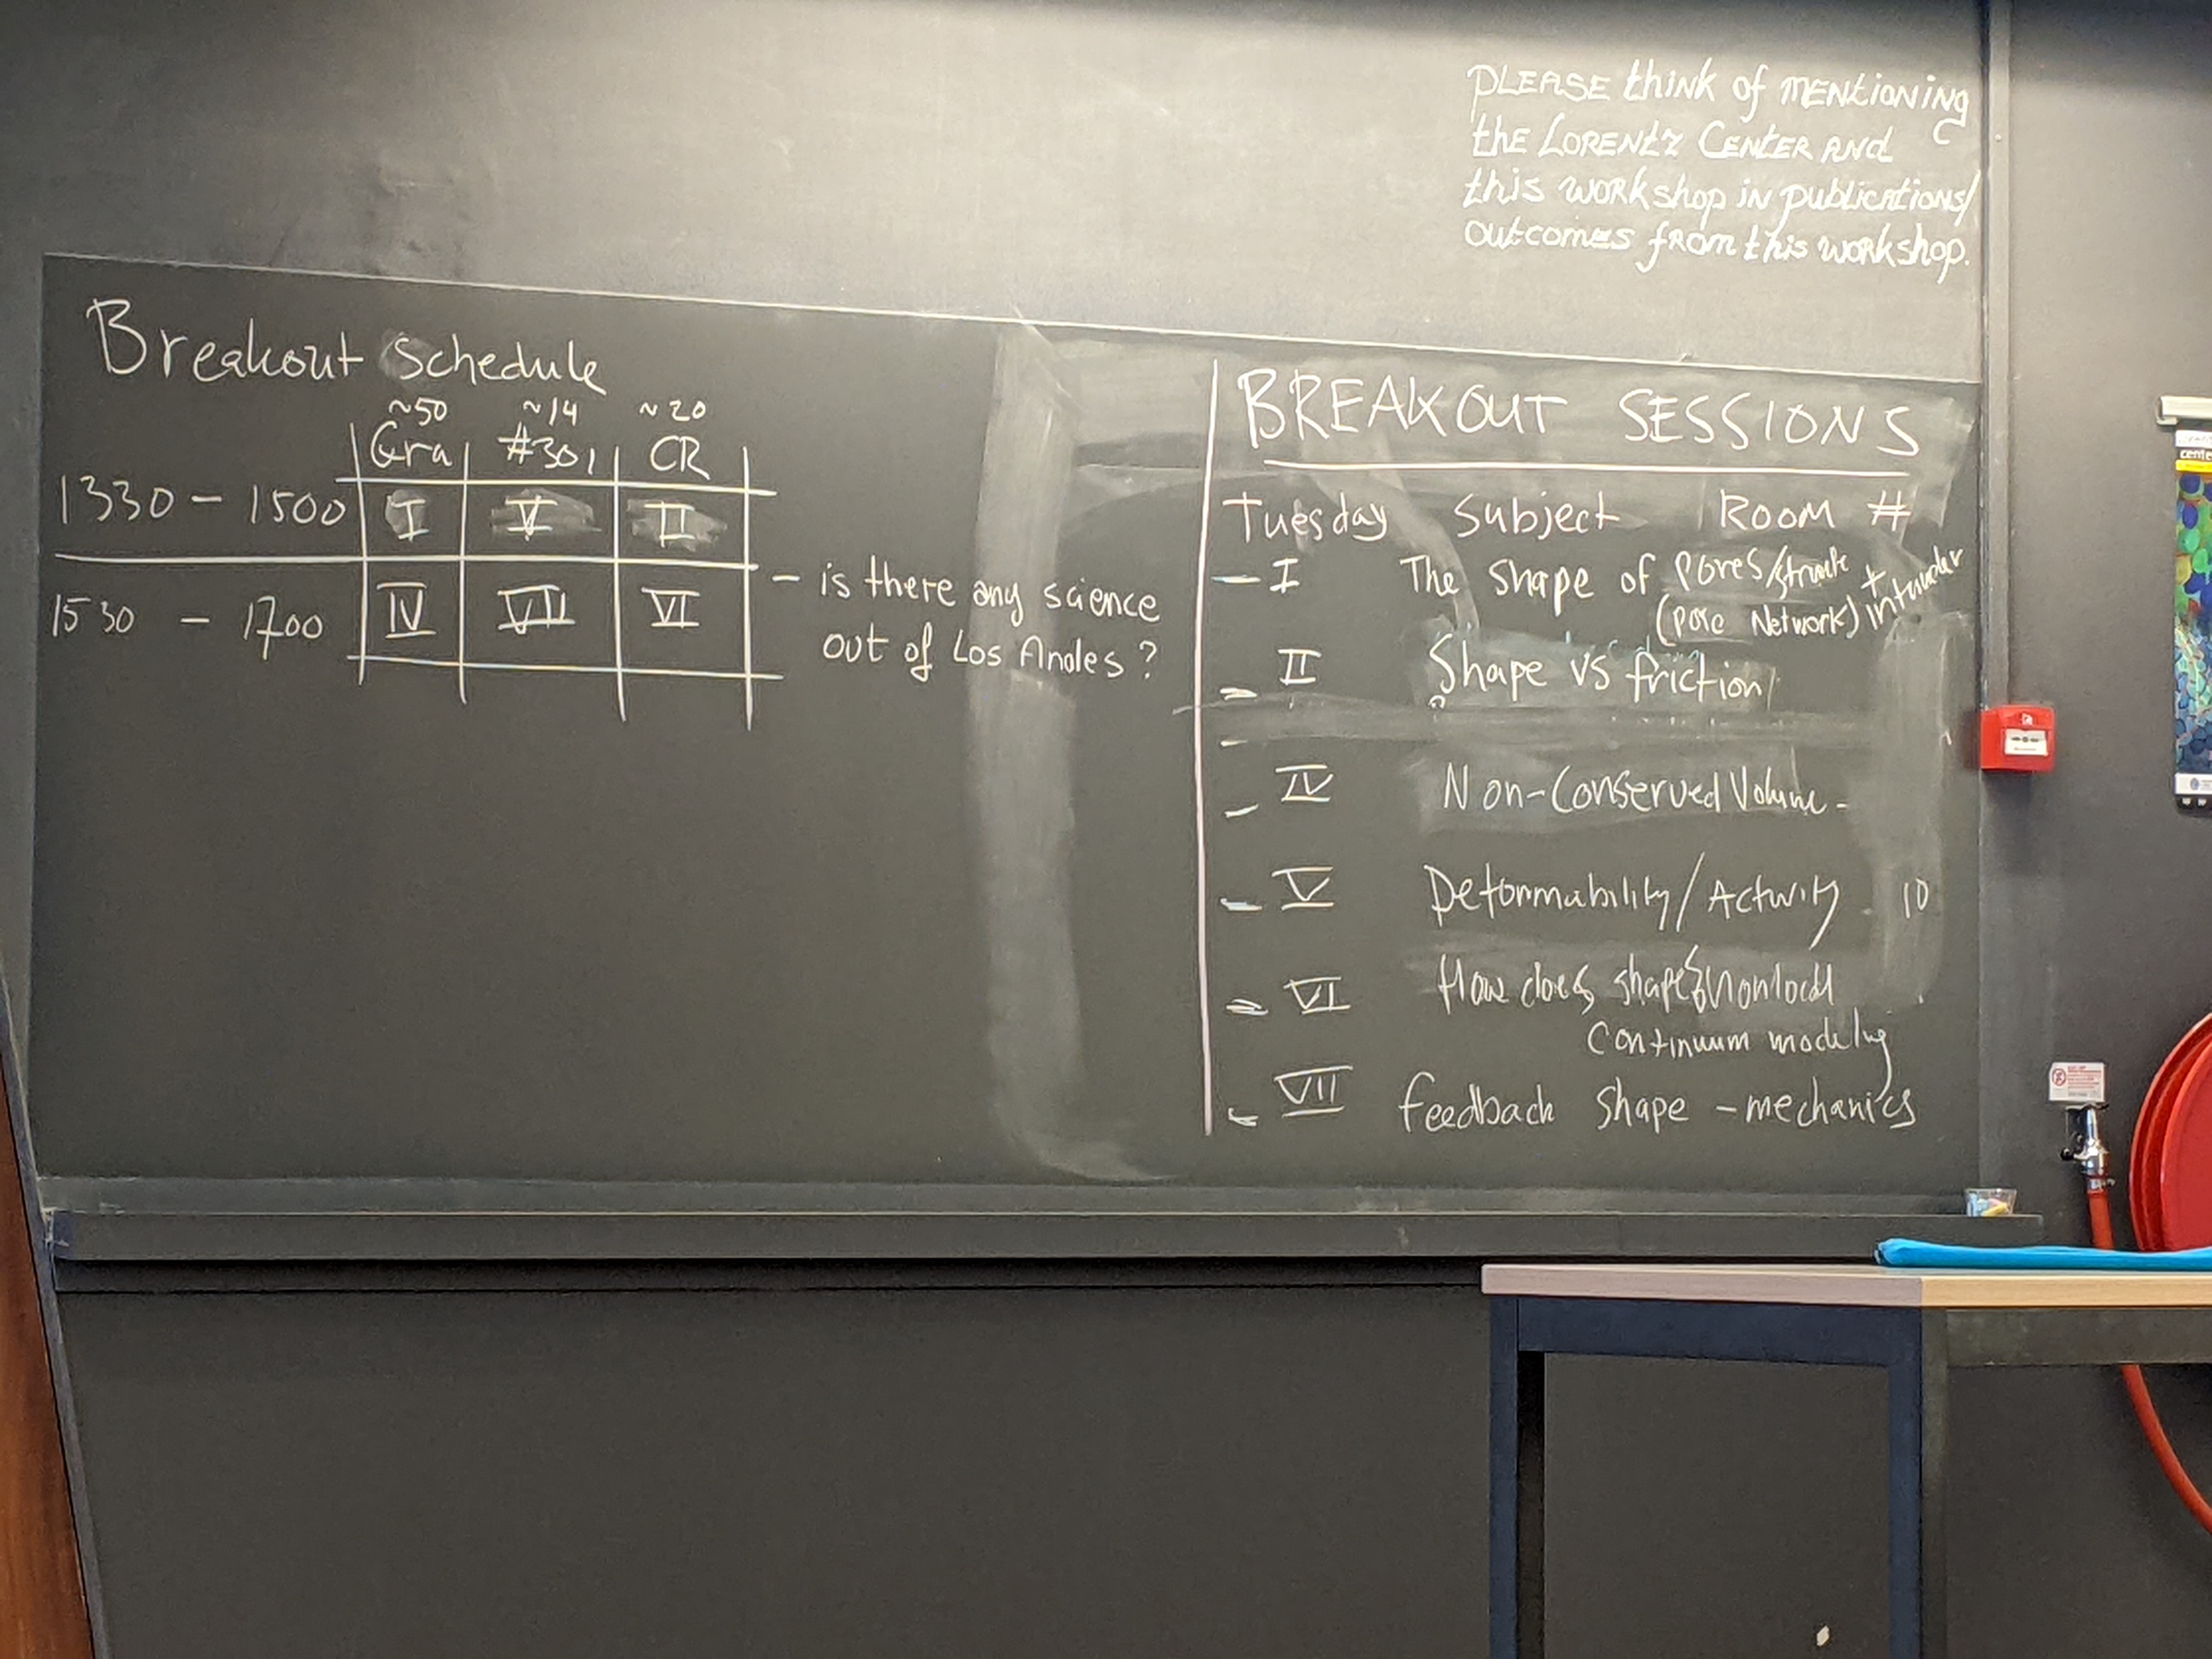 PLEASE think of mentioning
the Lorentz Center and
this workshop in publications/
outcomes from this workshop.
Breakout Schedule
~50 ~14 ~20
#301 CR
1330 - 1500 I V II
1530 - 1700 IV VII VI
- is there any science
out of Los Anoles?
BREAKOUT SESSIONS
Tuesday Subject Room #
- I The shape of pores/ +
(pore Network) intruder
- II Shape vs friction
-
- IV Non-Conserved Volume -
- V Deformability/Activity 10
- VI How does shape & Nonlocal
Continuum modeling
- VII feedback shape - mechanics
cente